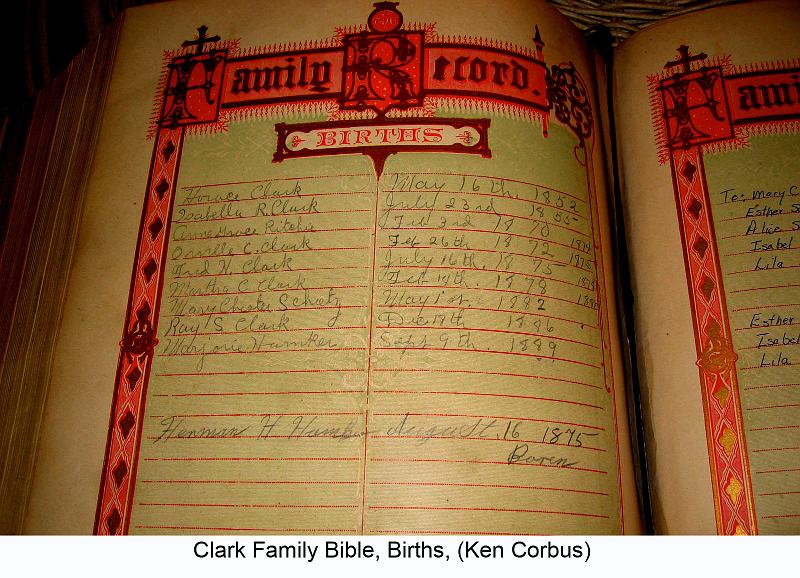 Family Record.
BIRTHS
Horace Clark May 16th, 1852
Isabella R. Clark July 23rd 1855
Anne Grace Ritchie Feb 2nd 1870
Orville C. Clark Feb 26th 1872
Fred H. Clark July 16th, 1875
Martha C Clark Feb 19th, 1878
Mary Chester Schatz May 1st, 1882
Ray S Clark Dec 18th 1886
Marjorie Humker Sept 9th. 1889
Herman H August, 16 1875
Boren
Fami
To: Mary C
Esther S
Alice S
Isabel
Lila
Esther
Isabel
Lila
Clark Family Bible, Births, (Ken Corbus)